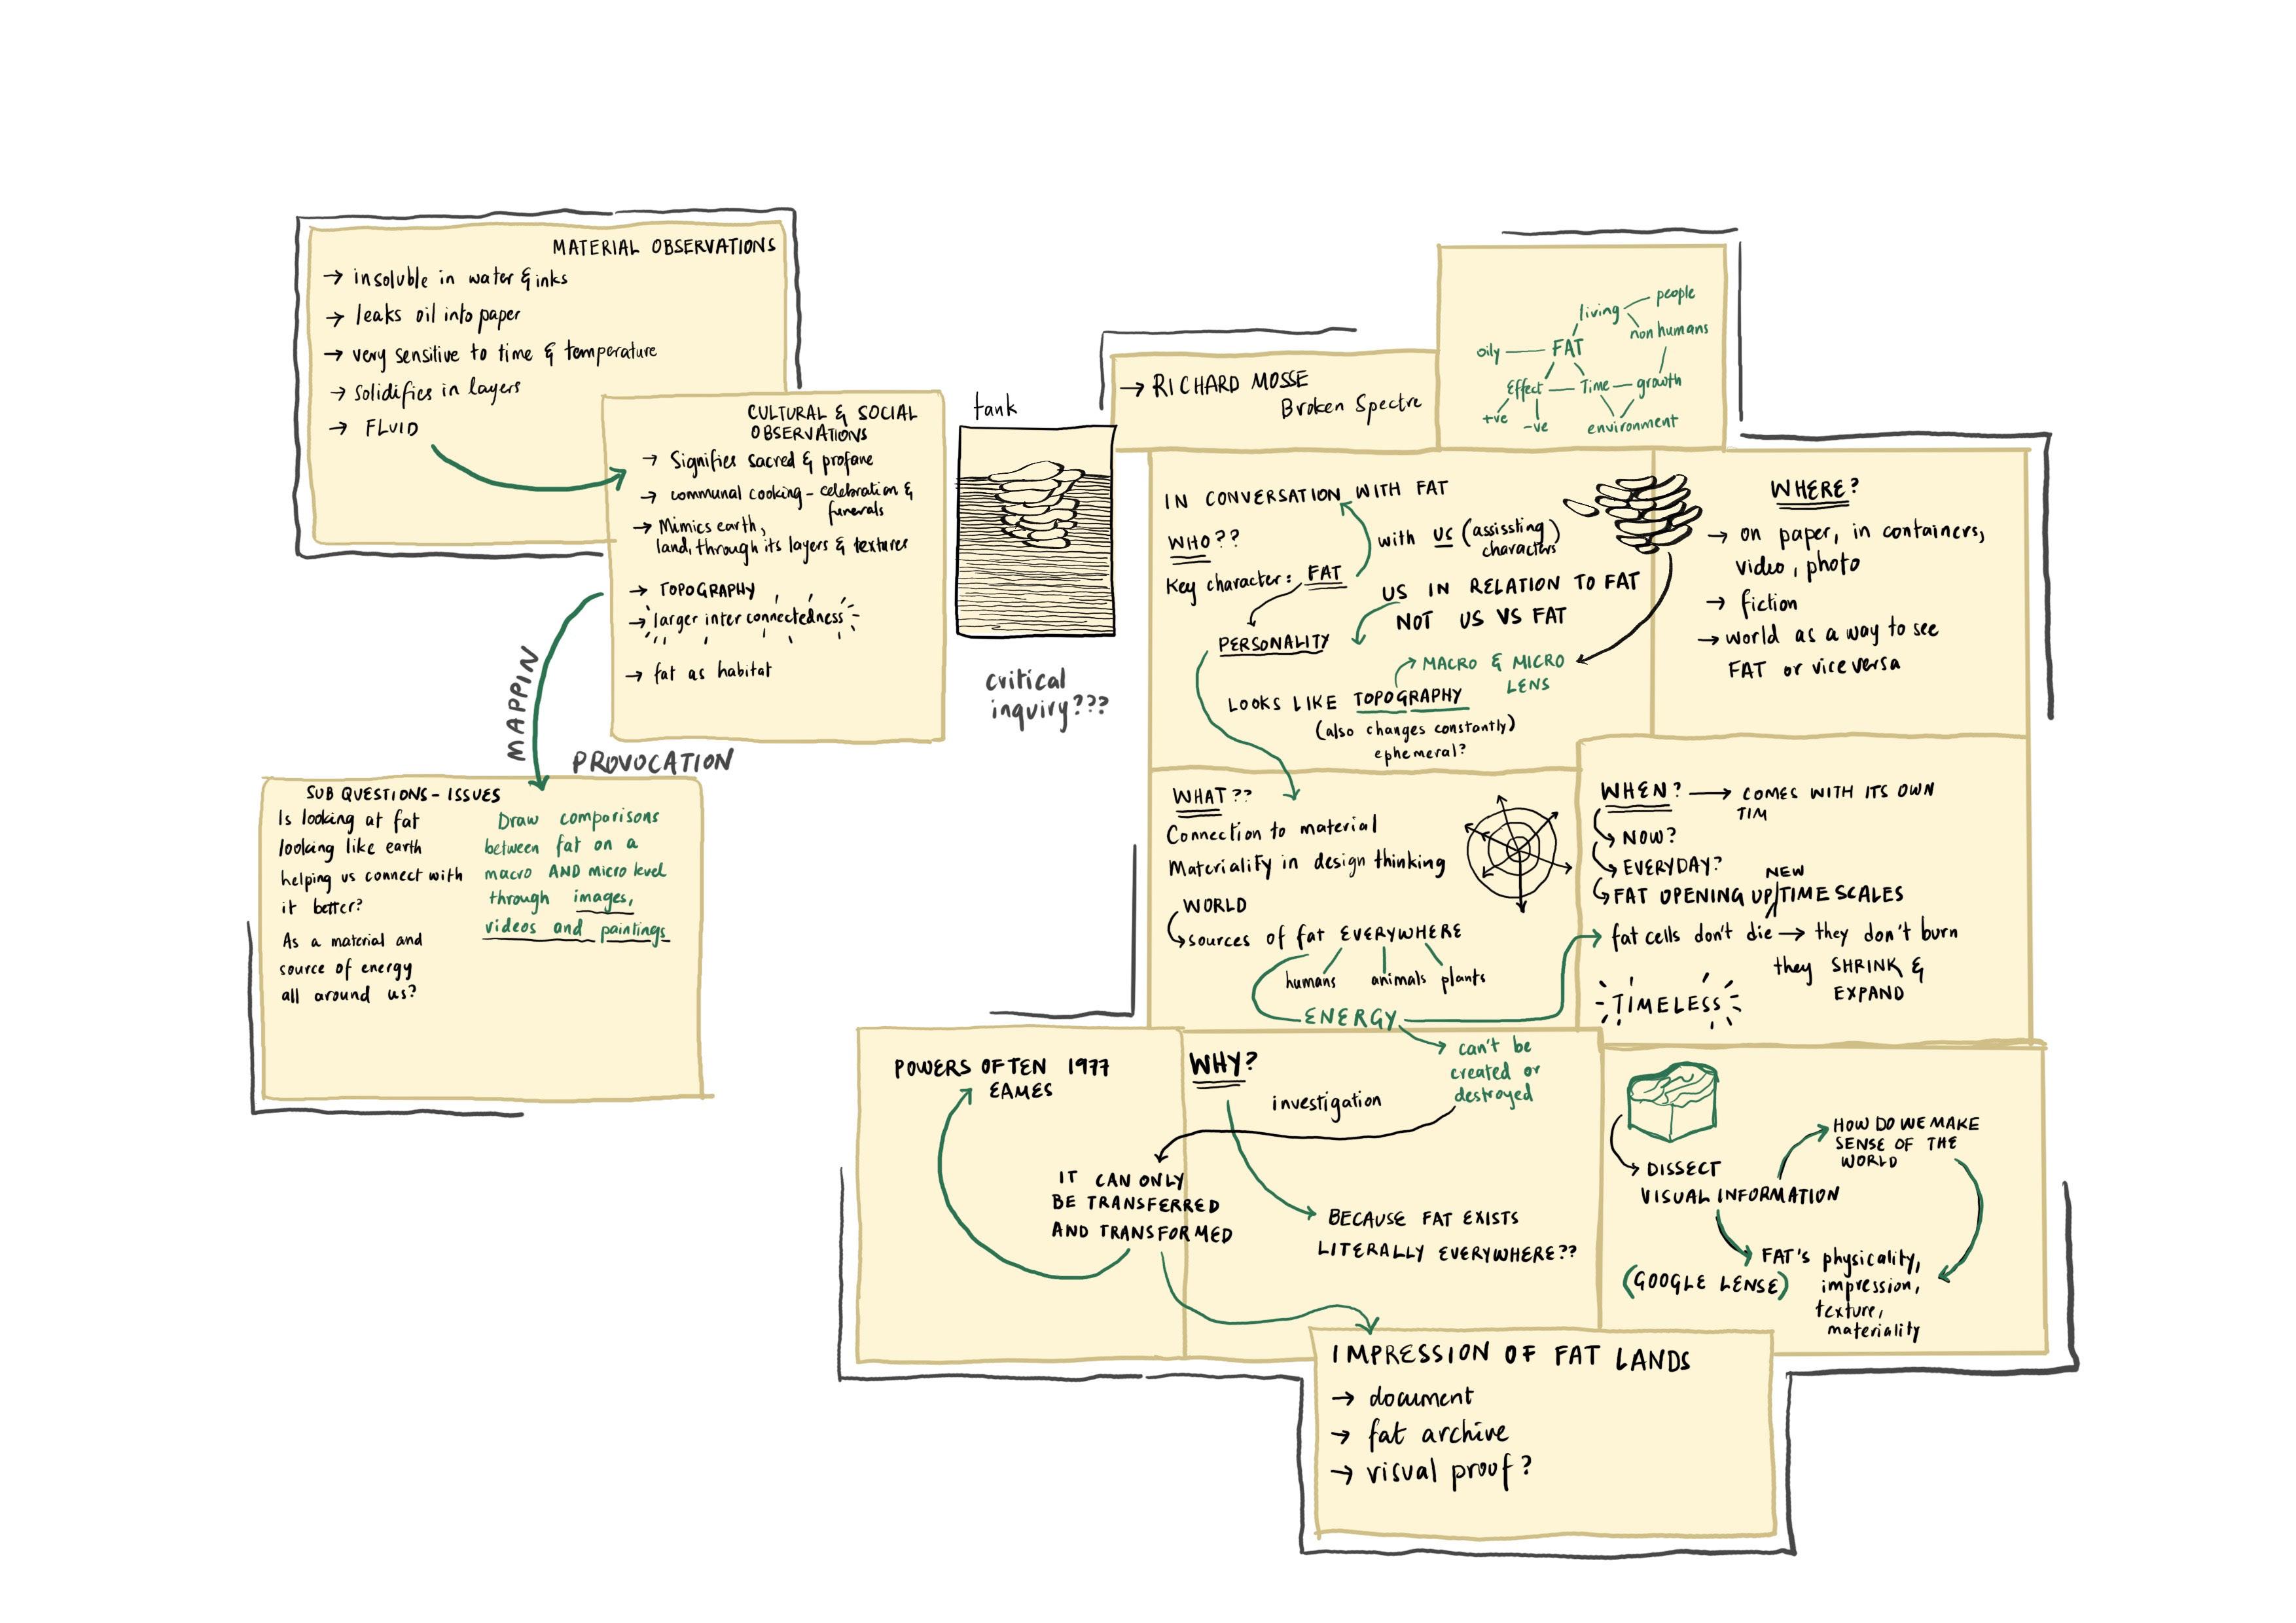 MATERIAL OBSERVATIONS
→ insoluble in water & inks
→ leaks oil into paper
→ very sensitive to time & temperature
→ Solidifies in layers
→ FLUID
CULTURAL & SOCIAL
OBSERVATIONS
→ Signifies sacred & profane
→ communal cooking - celebration &
funerals
→ Mimics earth,
land, through its layers & textures
→ TOPOGRAPHY
→ larger inter connectedness
→ fat as habitat
MAPPIN
PROVOCATION
SUB QUESTIONS - ISSUES
Is looking at fat
looking like earth
helping us connect with
it better?
As a material and
source of energy
all around us?
Draw comparisons
between fat on a
macro AND micro level
through images,
videos and paintings
tank
critical
inquiry???
→ RICHARD MOSSE
Broken Spectre
living
people
non humans
oily
FAT
Effect
Time
growth
+ve
-ve
environment
IN CONVERSATION WITH FAT
WHO??
with US (assissting
characters)
Key character: FAT
US IN RELATION TO FAT
NOT US VS FAT
PERSONALITY
MACRO & MICRO
LENS
LOOKS LIKE TOPOGRAPHY
(also changes constantly)
ephemeral?
WHERE?
→ on paper, in containers,
video, photo
→ fiction
→ world as a way to see
FAT or vice versa
WHAT??
Connection to material
Materiality in design thinking
WORLD
sources of fat EVERYWHERE
humans animals plants
ENERGY
WHEN? → COMES WITH ITS OWN
TIM
NOW?
EVERYDAY?
NEW
FAT OPENING UP/TIME SCALES
→ fat cells don't die → they don't burn
they SHRINK &
EXPAND
TIMELESS
POWERS OF TEN 1977
EAMES
WHY?
investigation
can't be
created or
destroyed
IT CAN ONLY
BE TRANSFERRED
AND TRANSFORMED
BECAUSE FAT EXISTS
LITERALLY EVERYWHERE??
DISSECT
VISUAL INFORMATION
HOW DO WE MAKE
SENSE OF THE
WORLD
(GOOGLE LENSE)
FAT'S physicality,
impression,
texture,
materiality
IMPRESSION OF FAT LANDS
→ document
→ fat archive
→ visual proof?